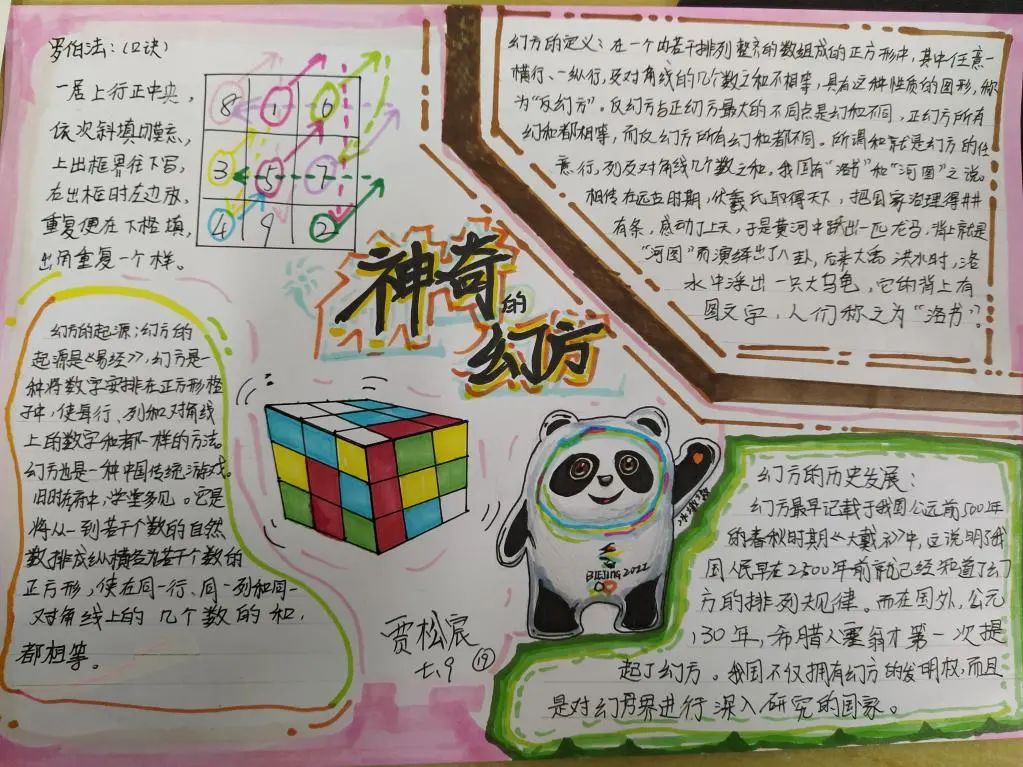 罗伯法：（口诀）
一居上行正中央，
依次斜填切莫忘，
上出框界往下写，
右出框时左边放，
重复便在下格填，
出角重复一个样。
8 1 6
3 5 7
4 9 2
幻方的定义：在一个由若干排列整齐的数组成的正方形中，其中任意一
横行、一纵行，及对角线的几个数之和不相等，具有这种性质的图形，称
为“反幻方”。反幻方与正幻方最大的不同点是幻和不同，正幻方所有
幻和都相等，而反幻方所有幻和都不同。所谓和就是幻方的任
意行，列及对角线几个数之和，我国有“洛书”和“河图”之说。
相传在远古时期，伏羲氏取得天下，把国家治理得井井
有条，感动了上天，于是黄河中跃出一匹龙马，背上就是
“河图”而演练出了八卦，后来大禹洪水时，洛
水中浮出一只大乌龟，它的背上有
图文字，人们称之为“洛书”？
神奇
的
幻方
幻方的起源；幻方的
起源是《易经》，幻方是一
种将数字安排在正方形格
子中，使每行、列和对角线
上的数字和都一样的方法。
幻方也是一种中国传统游戏。
旧时在府中，学堂多见。它是
将从一到若干个数的自然
数排成纵横各为若干个数的
正方形，使在同一行、同一列和同一
对角线上的几个数的和，
都相等。
BIEJING 2022
贾松宸
七、9 19
幻方的历史发展：
幻方最早记载于我国公元前500年
的春秋时期《大戴礼》中，这说明了我
国人民早在2500年前就已经知道了幻
方的排列规律。而在国外，公元
130年，希腊人塞翁才第一次提
起了幻方。我国不仅拥有幻方的发明权，而且
是对幻方界进行深入研究的国家。